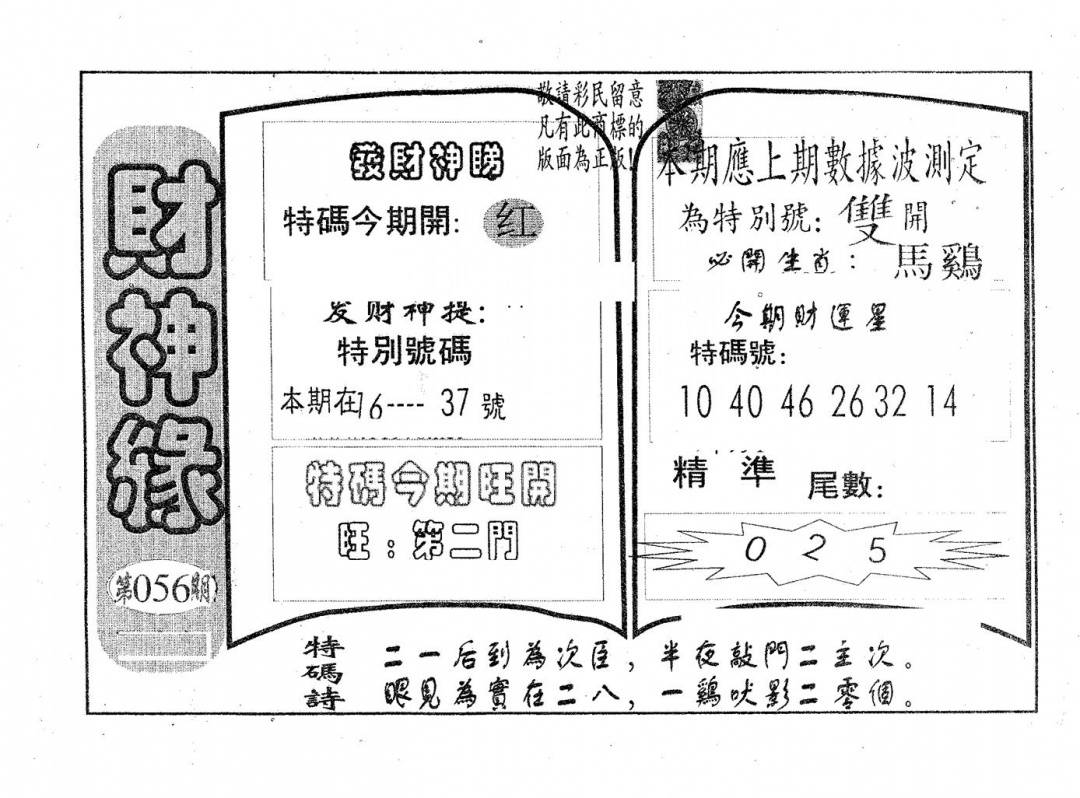 財神緣
第056期
敬請彩民留意
凡有此商標的
版面為正版!
發財神睇
特碼今期開: 红
发财神提:
特別號碼
本期在16---- 37 號
特碼今期旺開
旺：第二門
本期應上期數據波測定
為特別號: 雙 開
必開生肖： 馬鷄
今期財運星
特碼號:
10 40 46 26 32 14
精 準 尾數:
0 2 5
特碼詩
二一后到為次臣，半夜敲門二主次。
眼見為實在二八，一鷄吠影二零個。